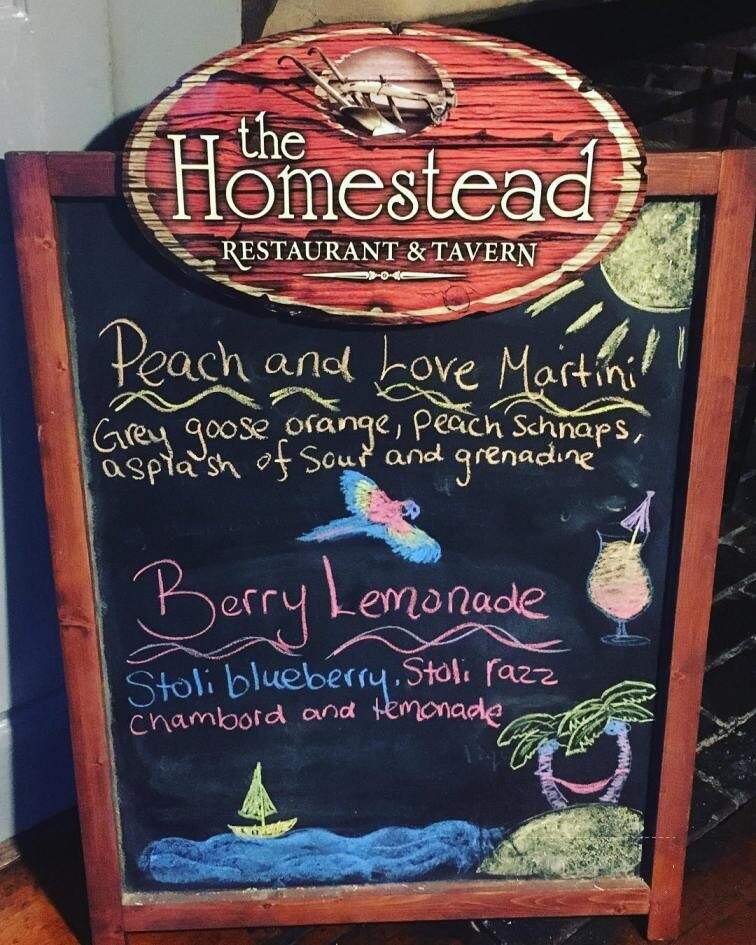 the
Homestead
RESTAURANT & TAVERN
Peach and Love Martini
Grey goose orange, Peach Schnaps,
a splash of Sour and grenadine
Berry Lemonade
Stoli blueberry. Stoli razz
Chambord and lemonade